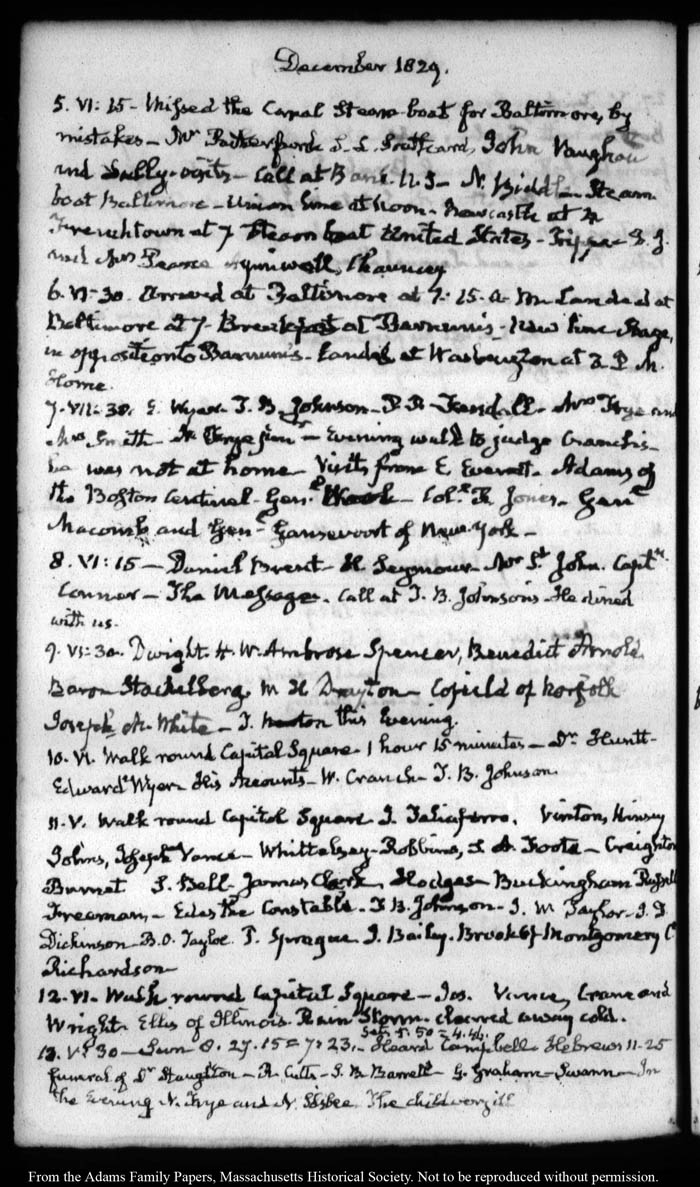 December 1829.
5. VI: 15 - Missed the Canal Steam-boat for Baltimore, by
mistake - Mr S. L. Southard, John Vaughan
and Sully - visits - Call at Bank. U.S - N. Biddle - Steam
boat Baltimore - Union line at Noon - Newcastle at 4
Frenchtown at 7 Steam boat United States - S. J.
and Jno Pearce Chauncey
6. VI-30. Arrived at Baltimore at 7. 15. A.M. Landed at
Baltimore at 7 - Breakfast at Barnum's - New line Stage,
in opposition to Barnum's - Landed at Washington at 3 P. M.
Home.
7. VII: 30. E. Wyer - T. B. Johnson - Kendall - Mrs Frye and
Mrs Smith - N. Frye junr - Evening walk to judge Cranch's -
he was not at home - Visits from E. Everett - Adams of
the Boston Centinel - Genl - Coll. R. Jones - Genl
Macomb and Genl Gansevoort of New-York -
8. VI: 15 - Daniel Brent - H. Seymour - Mr St. John. Captn.
Connor - The Message. Call at T. B. Johnson's - He dined
with us.
9. VI: 30. Dwight. H. W. Ambrose Spencer, Benedict Arnold
Baron Stackelberg. Drayton - of Norfolk
Joseph M. White - T. this Evening.
10. VI. Walk round Capitol Square - 1 hour 15 minutes - Dr. Huntt -
Edward Wyer His Accounts - W. Cranch - T. B. Johnson.
11. V. Walk round Capitol Square J. Taliaferro. Vinton, Kinsey
Johns, Joseph Vance - Whittlesey - Robbins, S. A. Foote - Creighton
Burnet S. Bell - James Clark, Hodges - Buckingham Russell
Freeman, - the Constable - T. B. Johnson - J. W. Taylor - J. D.
Dickinson - B. O. Tayloe. P. Sprague. J. Bailey. Brooke of Montgomery Cy
Richardson
12. VI. Walk round Capitol Square - Jos. Vance, Crane and
Wright. Ellis of Illinois. Rain Storm - cleared away cold.
Set. 5. 50 = 4. 44.
13. VI 30 - Sun 8. 27. 15 = 7: 23. - Heard Campbell. Hebrews 11-25
funeral of Dr Staughton - R. Cutts - Barrett - G. Graham - Swann - In
the Evening N. Frye and The child very ill
From the Adams Family Papers, Massachusetts Historical Society. Not to be reproduced without permission.